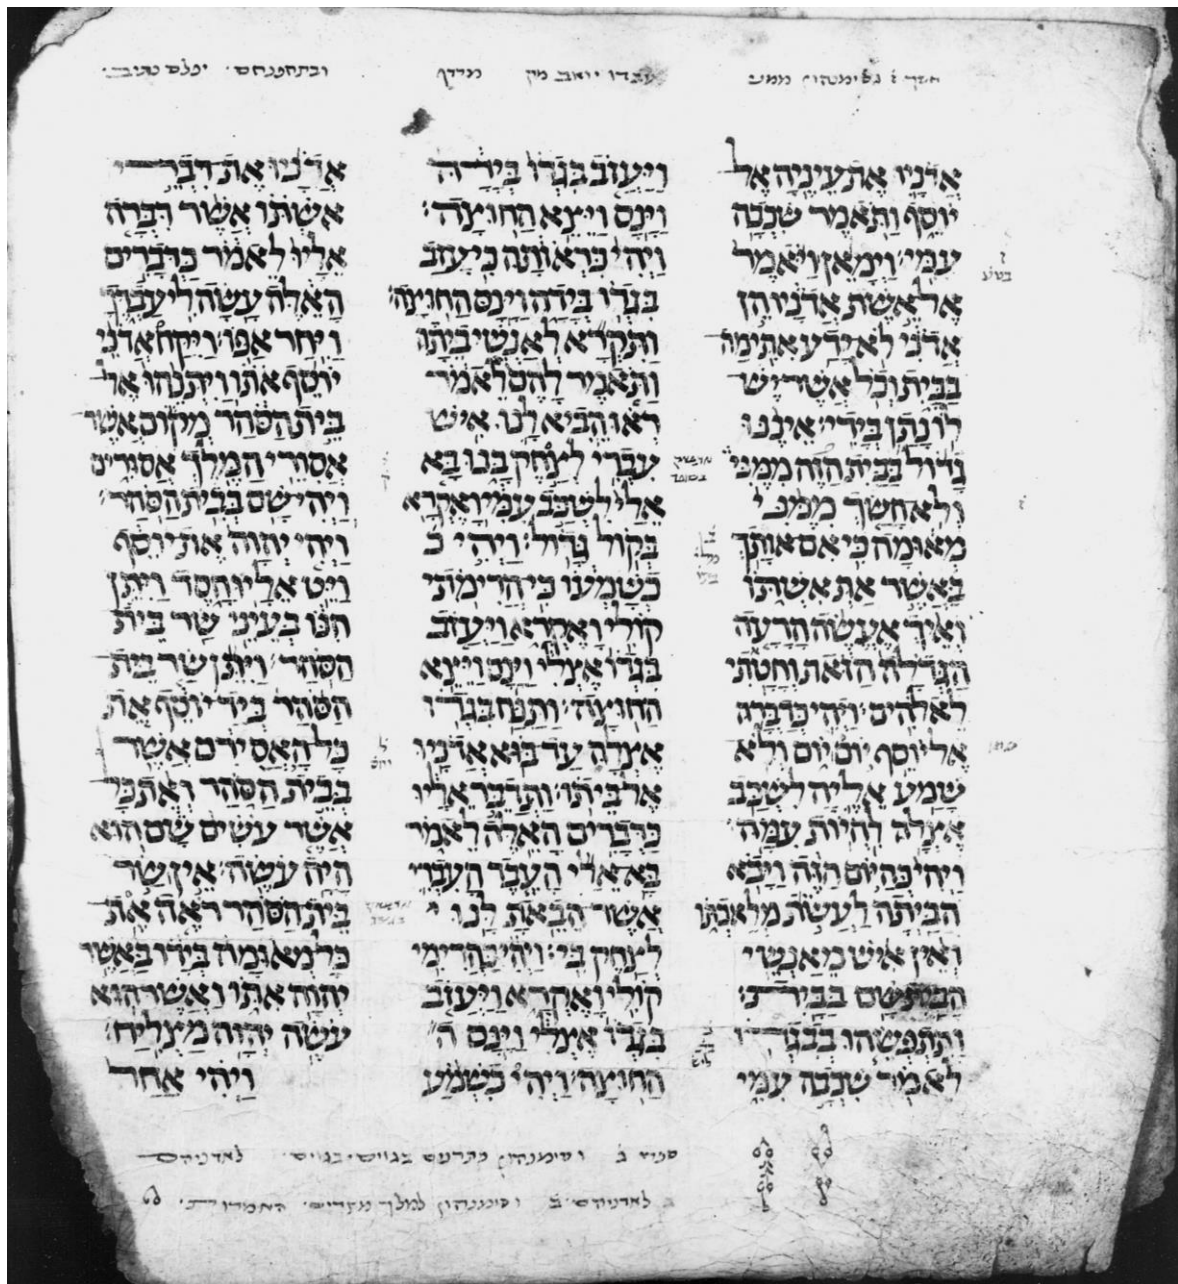 אדניו את עיניה אל
יוסף ותאמר שכבה
עמי׃ וימאן ויאמר
אל אשת אדניו הן
אדני לא ידע אתי מה
בבית וכל אשר יש
לו נתן בידי׃ איננו
גדול בבית הזה ממני
ולא חשך ממני
מאומה כי אם אותך
באשר את אשתו
ואיך אעשה הרעה
הגדלה הזאת וחטאתי
לאלהים׃ ויהי כדברה
אל יוסף יום יום ולא
שמע אליה לשכב
אצלה להיות עמה׃
ויהי כהיום הזה ויבא
הביתה לעשות מלאכתו
ואין איש מאנשי
הבית שם בבית׃
ותתפשהו בבגדו
לאמר שכבה עמי
ויעזב בגדו בידה
וינס ויצא החוצה׃
ויהי כראותה כי עזב
בגדו בידה וינס החוצה׃
ותקרא לאנשי ביתה
ותאמר להם לאמר
ראו הביא לנו איש
עברי לצחק בנו בא
אלי לשכב עמי ואקרא
בקול גדול׃ ויהי כ
כשמעו כי הרימתי
קולי ואקרא ויעזב
בגדו אצלי וינס ויצא
החוצה׃ ותנח בגדו
אצלה עד בוא אדניו
אל ביתו׃ ותדבר אליו
כדברים האלה לאמר
בא אלי העבד העברי
אשר הבאת לנו
לצחק בי׃ ויהי כהרימי
קולי ואקרא ויעזב
בגדו אצלי וינס ה
החוצה׃ ויהי כשמע
אדניו את דברי
אשתו אשר דברה
אליו לאמר כדברים
האלה עשה לי עבדך
ויחר אפו׃ ויקח אדני
יוסף אתו ויתנהו אל
בית הסהר מקום אשר
אסורי המלך אסורים
ויהי שם בבית הסהר׃
ויהי יהוה את יוסף
ויט אליו חסד ויתן
חנו בעיני שר בית
הסהר׃ ויתן שר בית
הסהר ביד יוסף את
כל האסירם אשר
בבית הסהר ואת כל
אשר עשים שם הוא
היה עשה׃ אין שר
בית הסהר ראה את
כל מאומה בידו באשר
יהוה אתו ואשר הוא
עשה יהוה מצליח׃
ויהי אחר